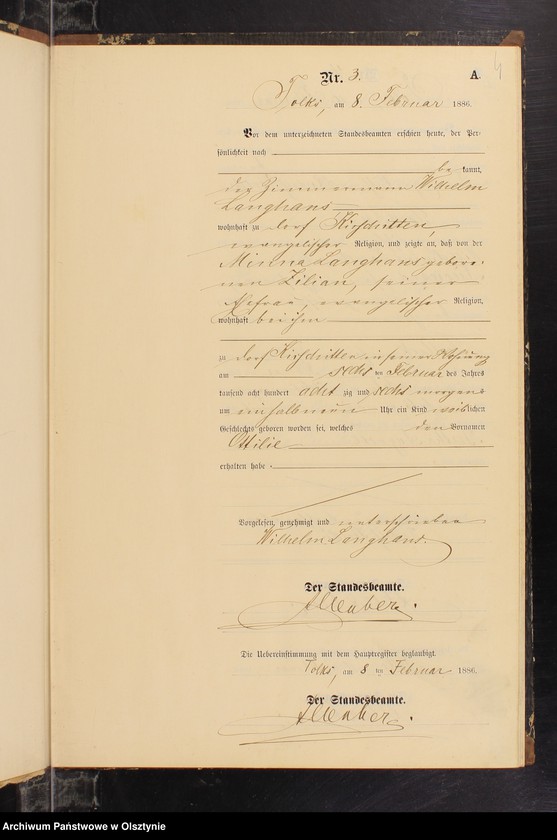 4
Nr. 3. A.
Tolks, am 8. Februar 1886.
Vor dem unterzeichneten Standesbeamten erschien heute, der Per-
sönlichkeit nach
be kannt,
der Zimmermann Wilhelm
Langhans
wohnhaft zu Dorf Kirschitten,
evangelischer Religion, und zeigte an, daß von der
Minna Langhans gebore-
nen Zilian, seiner
Ehefrau, evangelischer Religion,
wohnhaft bei ihm
zu Dorf Kirschitten in seiner Wohnung
am sechs ten Februar des Jahres
tausend acht hundert acht zig und sechs morgens
um ein halb neun Uhr ein Kind weiblichen
Geschlechts geboren worden sei, welches den Vornamen
Ottilie
erhalten habe.
Vorgelesen, genehmigt und unterschrieben
Wilhelm Langhans.
Der Standesbeamte.
Die Uebereinstimmung mit dem Hauptregister beglaubigt.
Tolks, am 8 ten Februar 1886.
Der Standesbeamte.
Archiwum Państwowe w Olsztynie